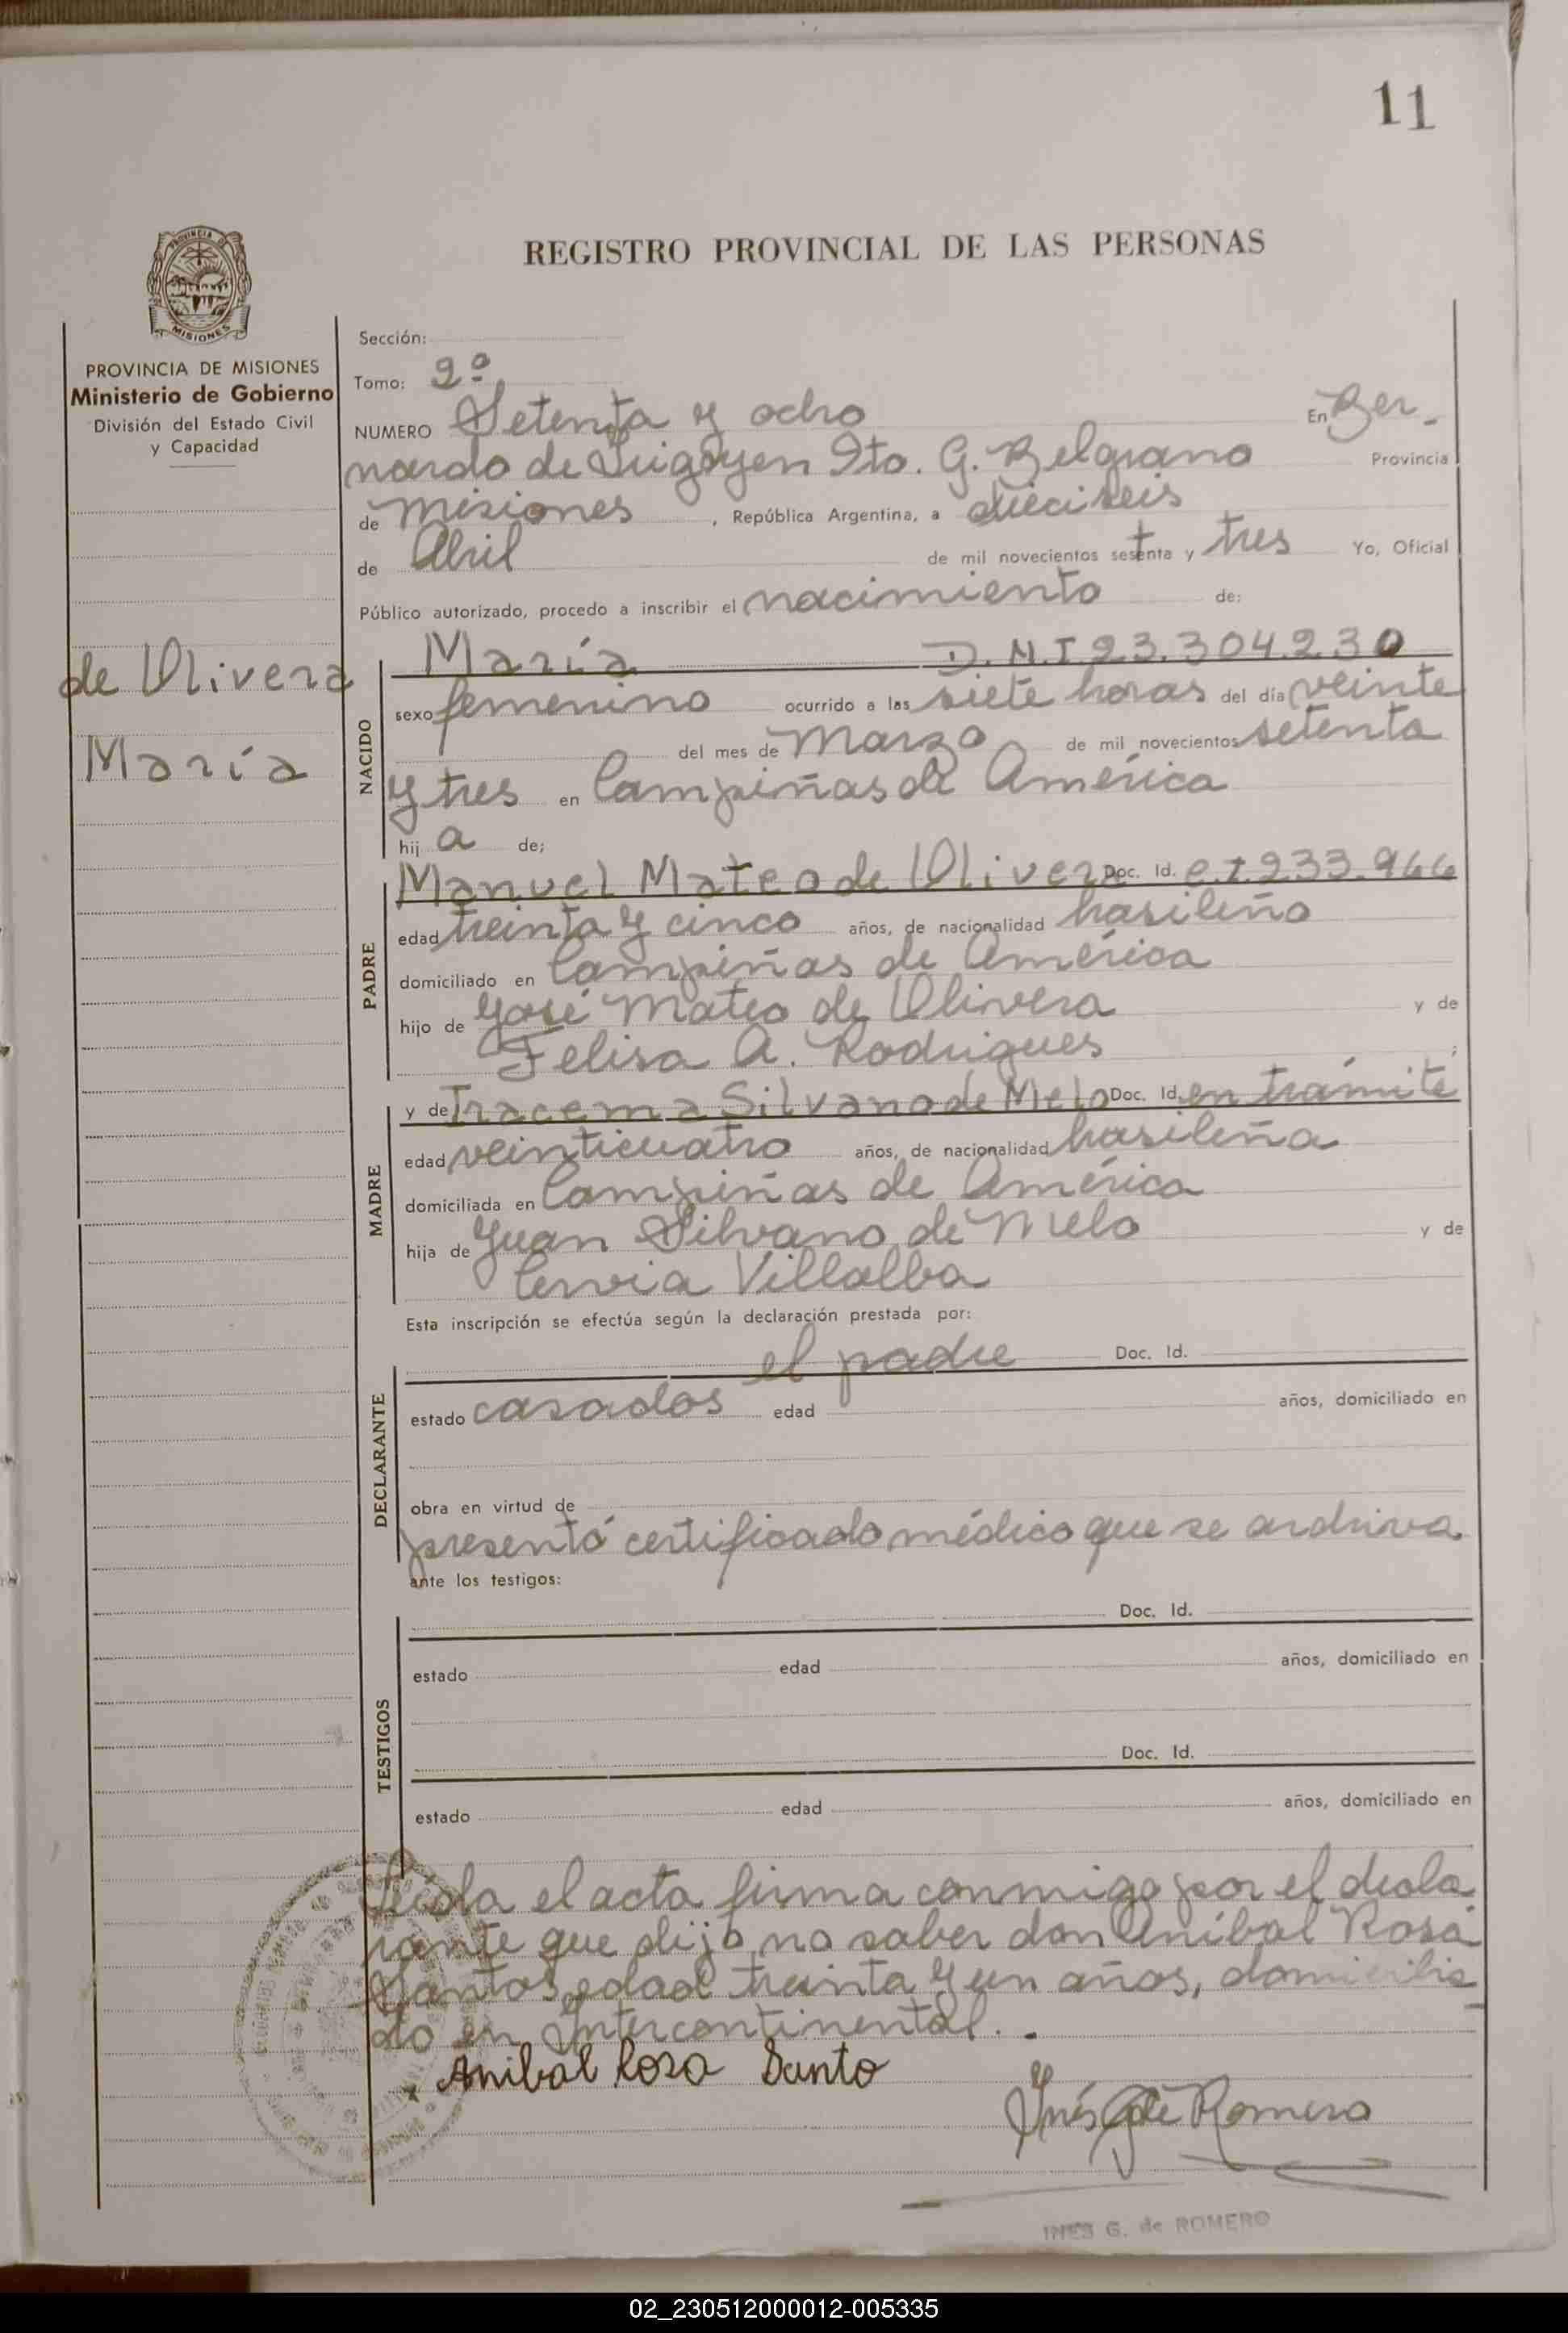 11
REGISTRO PROVINCIAL DE LAS PERSONAS
PROVINCIA DE MISIONES
Ministerio de Gobierno
División del Estado Civil
y Capacidad
de Olivera
María
Sección:
Tomo: 2º
NUMERO Setenta y ocho En Ber-
nardo de Irigoyen Dto. G. Belgrano Provincia
de Misiones, República Argentina, a dieciseis
de Abril de mil novecientos setenta y tres Yo, Oficial
Público autorizado, procedo a inscribir el nacimiento de:
NACIDO
María D.N.I 23.304.230
sexo femenino ocurrido a las siete horas del día veinte
del mes de Marzo de mil novecientos setenta
y tres en Campiñas de América
hij a de;
PADRE
Manuel Mateo de Olivera Doc. Id. C.I. 233.966
edad treinta y cinco años, de nacionalidad brasileño
domiciliado en Campiñas de América
hijo de José Mateo de Olivera y de
Felisa A. Rodrigues ;
MADRE
y de Iracema Silvano de Melo Doc. Id. en trámite
edad veinticuatro años, de nacionalidad brasileña
domiciliada en Campiñas de América
hija de Juan Silvano de Melo y de
Villalba
Esta inscripción se efectúa según la declaración prestada por:
DECLARANTE
el padre Doc. Id.
estado casados edad años, domiciliado en
obra en virtud de
presentó certificado médico que se archiva
ante los testigos:
TESTIGOS
Doc. Id.
estado edad años, domiciliado en
Doc. Id.
estado edad años, domiciliado en
Leída el acta firma conmigo por el decla
rante que dijo no saber don Aníbal Rosa
Santos edad treinta y un años, domicilia
do en Intercontinental.-
Anibal Rosa Santo
Inés G de Romero
INES G. de ROMERO
02_230512000012-005335